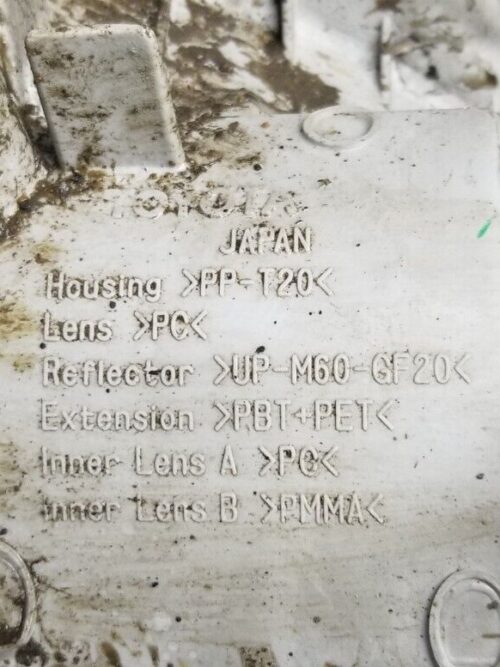 TOYOTA
JAPAN
Housing >PP-T20<
Lens >PC<
Reflector >UP-M60-GF20<
Extension >PBT+PET<
Inner Lens A >PC<
Inner Lens B >PMMA<